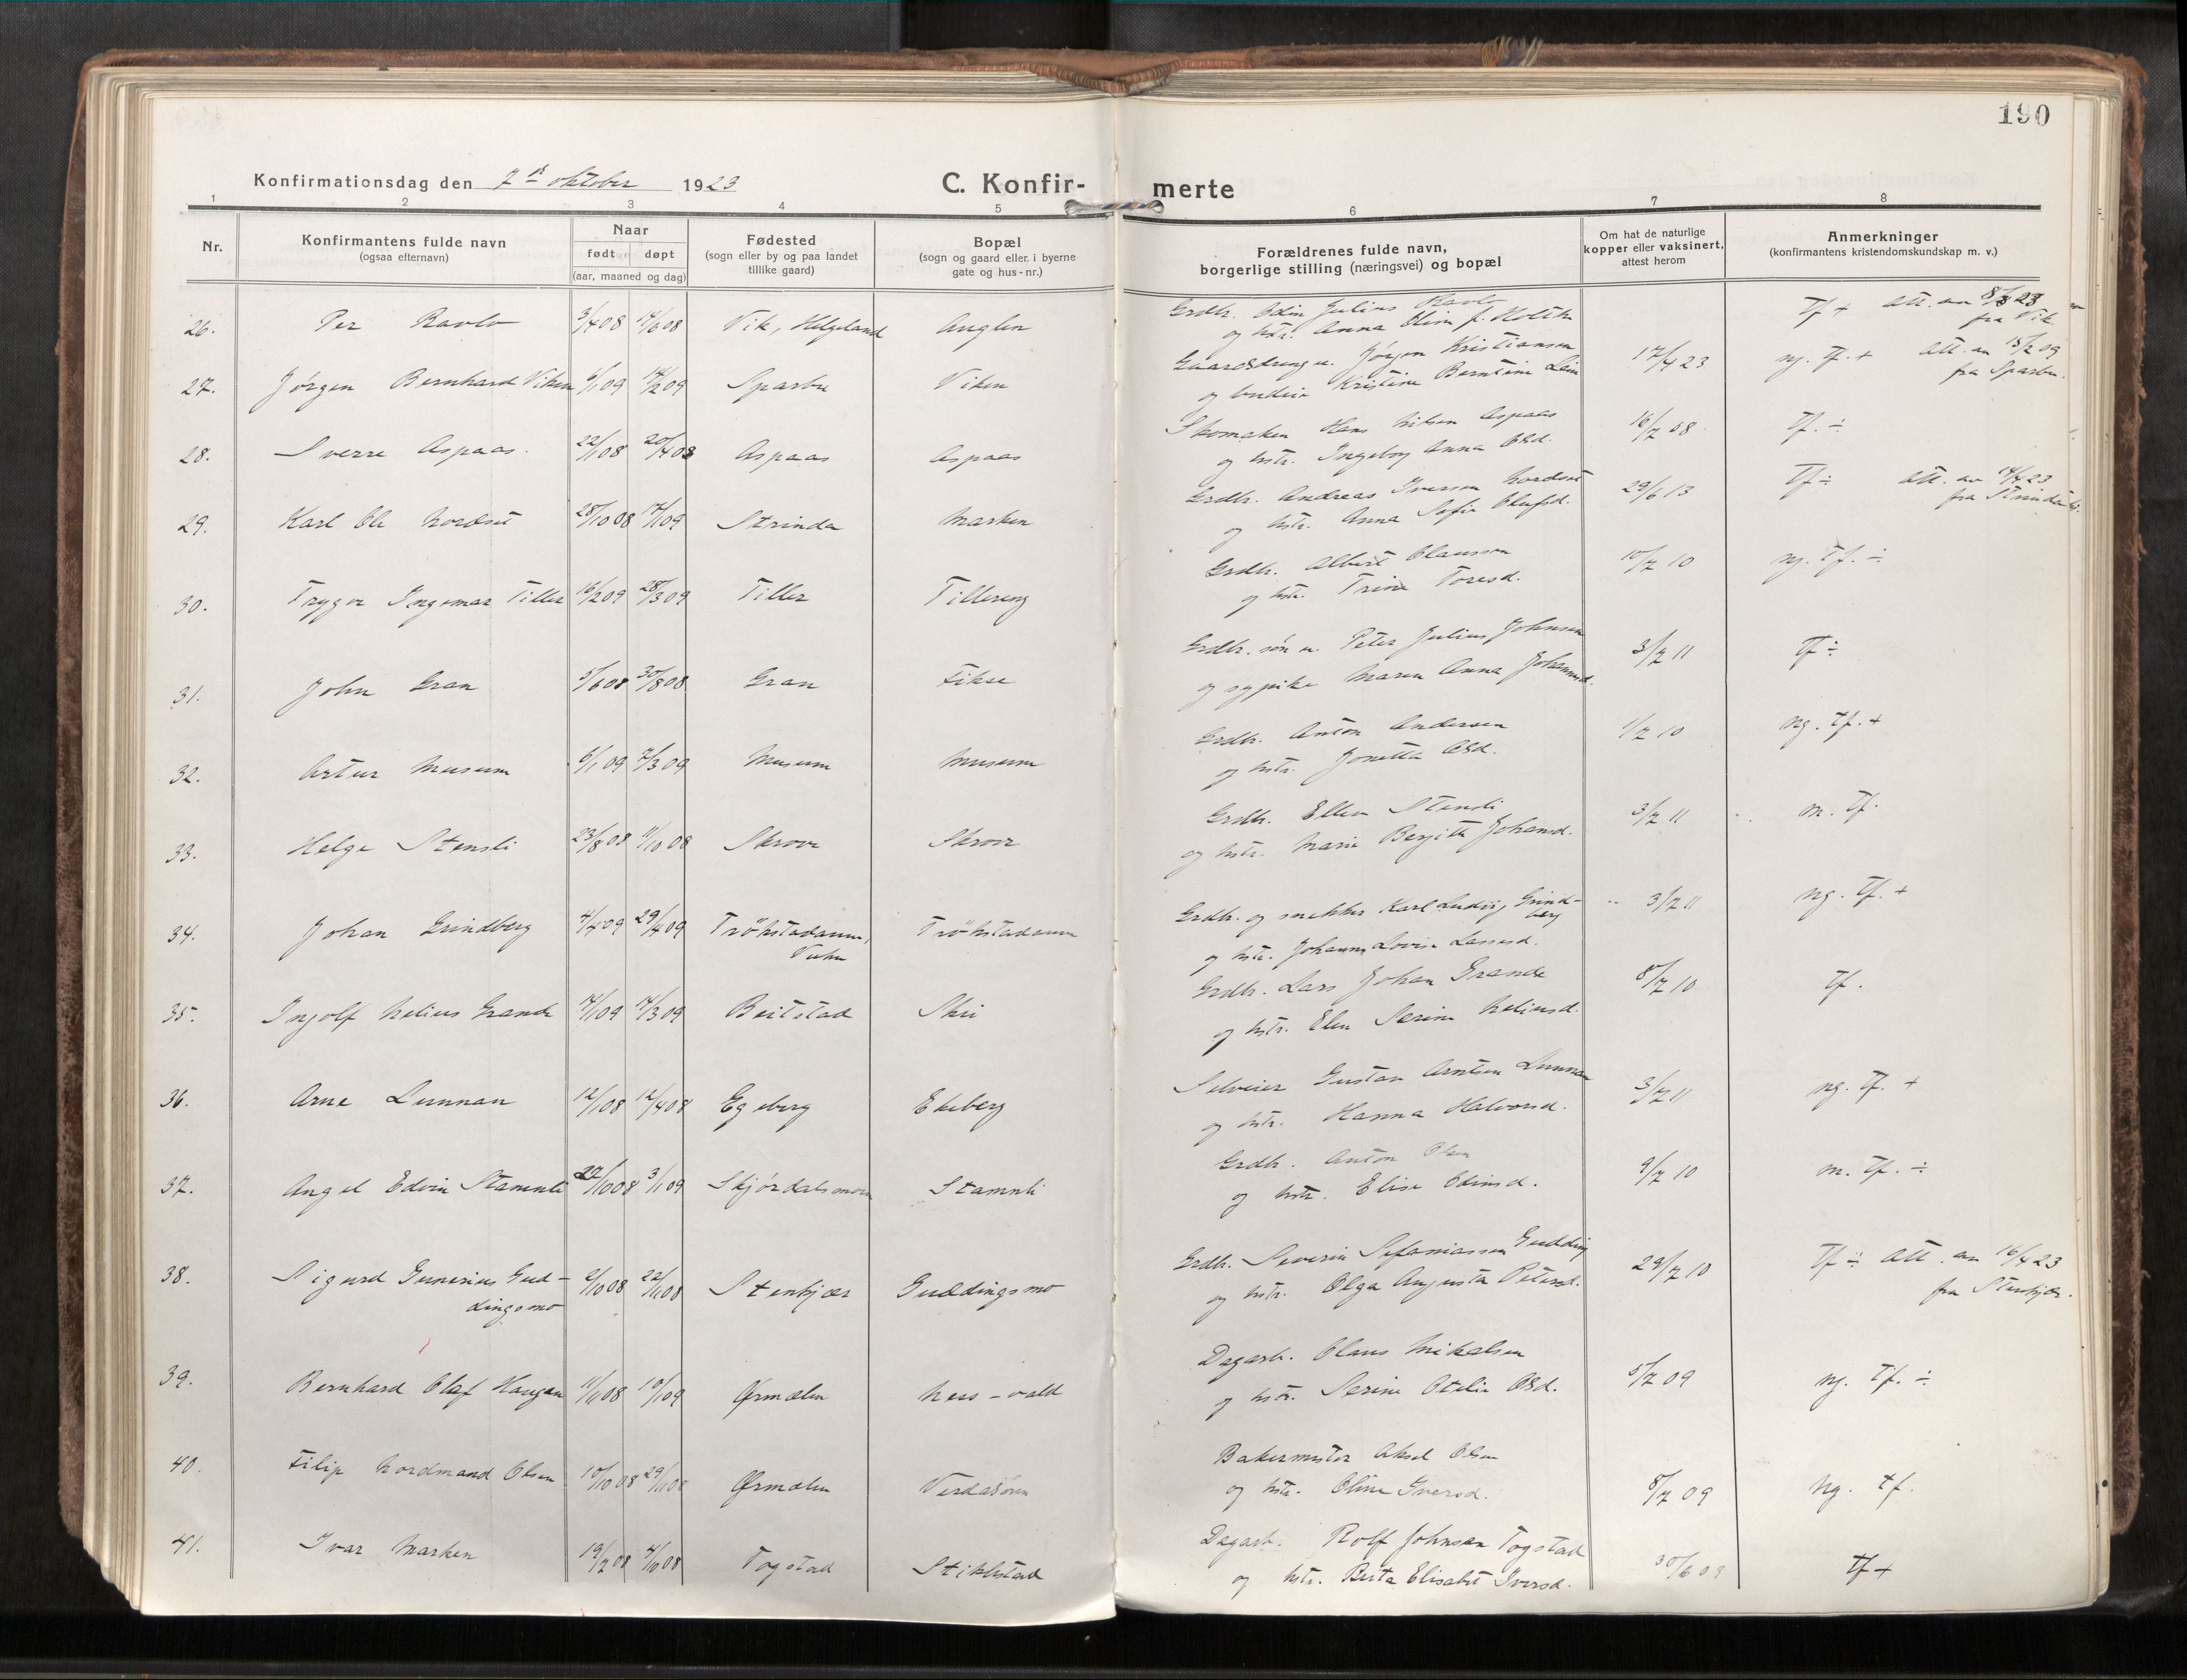 190
Konfirmationsdag den 7de oktober 1923
C. Konfirmerte
1 2 3 4 5 6 7 8
Nr.
Konfirmantens fulde navn
(ogsaa efternavn)
Naar
født døpt
(aar, maaned og dag)
Fødested
(sogn eller by og paa landet
tillike gaard)
Bopæl
(sogn og gaard eller, i byerne
gate og hus-nr.)
Forældrenes fulde navn,
borgerlige stilling (næringsvei) og bopæl
Om hat de naturlige
kopper eller vaksinert,
attest herom
Anmerkninger
(konfirmantens kristendomskundskap m. v.)
26. Per Ravlo 3/4 08 14/6 08 Vik, Helgeland Auglen
Grdbr. Odin Julius Ravlo
og hstr. Anna Oline f. Holthe
Tf + Att. av 8/8 23
fra Vik.
27. Jørgen Bernhard Viken 6/1 09 14/2 09 Sparbu Viken
Gaardsdreng u. Jørgen Kristiansen
og budeie Kristine Berntine Lein
17/4 23 ng. Tf. + Att. av 13/2 09
fra Sparbu.
28. Sverre Aspaas. 22/1 08 20/4 08 Aspaas Aspaas
Skomaker Hans Nilsen Aspaas
og hstr. Ingeborg Anna Olsd.
16/7 08 Tf. ÷
29. Karl Ole Nordset 28/10 08 17/1 09 Strinda Marken
Grdbr. Andreas Iversen Nordset
og hstr. Anna Sofie Olufsd.
29/6 13 Tf ÷ Att. av 14/4 23
fra Strinda
30. Trygve Ingemar Tiller 16/2 09 28/3 09 Tiller Tillereng
Grdbr. Albert Olaussen
og hstr. Trine Toresd.
10/7 10 ng. Tf. ÷
31. John Gran 5/6 08 30/8 08 Gran Fikse
Grdbr. søn u. Peter Julius Johnsen
og sypike Maren Anna Johannesd.
3/7 11 Tf ÷
32. Artur Musum 6/1 09 7/3 09 Musum Musum
Grdbr. Anton Andersen
og hstr. Jonetta Olsd.
1/7 10 ng. tf. +
33. Helge Stensli 23/8 08 11/10 08 Skrove Skrove
Grdbr. Ellev Stensli
og hstr. Marie Bergitte Johansd.
3/7 11 m. Tf.
34. Johan Grindberg 4/4 09 29/4 09 Trøhstadaunu, Trøhstadaunu
Vuku
Grdbr. og snekker Karl Ludvig Grind-
berg
og hstr. Johanna Lovise Lassesd.
3/7 11 ng. Tf. +
35. Ingolf Nelius Grande 14/1 09 14/3 09 Beitstad Skei
Grdbr. Lars Johan Grande
og hstr. Elen Serine Neliusd.
8/7 10 Tf.
36. Arne Lunnan 12/1 08 12/4 08 Egeberg Ekeberg
Selveier Gustav Arntsen Lunnan
og hstr. Hanna Halvorsd.
3/7 11 ng. Tf. +
37. Angel Edvin Stamnli 22/10 08 3/1 09 Skjørdalsmoen Stamnli
Grdbr. Anton Olsen
og hstr. Elise Edinsd.
9/7 10 m. Tf. ÷
38. Sigurd Gunerius Gud- 2/10 08 22/11 08 Stenkjær Guddingsmo
dingsmo
Grdbr. Severin Sefaniassen Gudding
og hstr. Olga Augusta Petersd.
29/7 10 Tf ÷ Att. av 16/4 23
fra Stenkjær.
39. Bernhard Olaf Haugan 11/11 08 10/1 09 Ørmælen Ness-vald
Dagarb. Olaus Mikalsen
og hstr. Serine Otelie Olsd.
5/7 09 ng. Tf. ÷
40. Filip Nordmand Olsen 10/10 08 29/11 08 Ørmælen Verdalsøren
Bakermester Aksel Olsen
og hstr. Oline Iversd.
8/7 09 ng. tf.
41. Ivar Marken 19/7 08 4/10 08 Togstad Stiklstad
Dagarb. Rolf Johnsen Togstad
og hstr. Berta Elisabet Iversd.
30/6 09 tf +